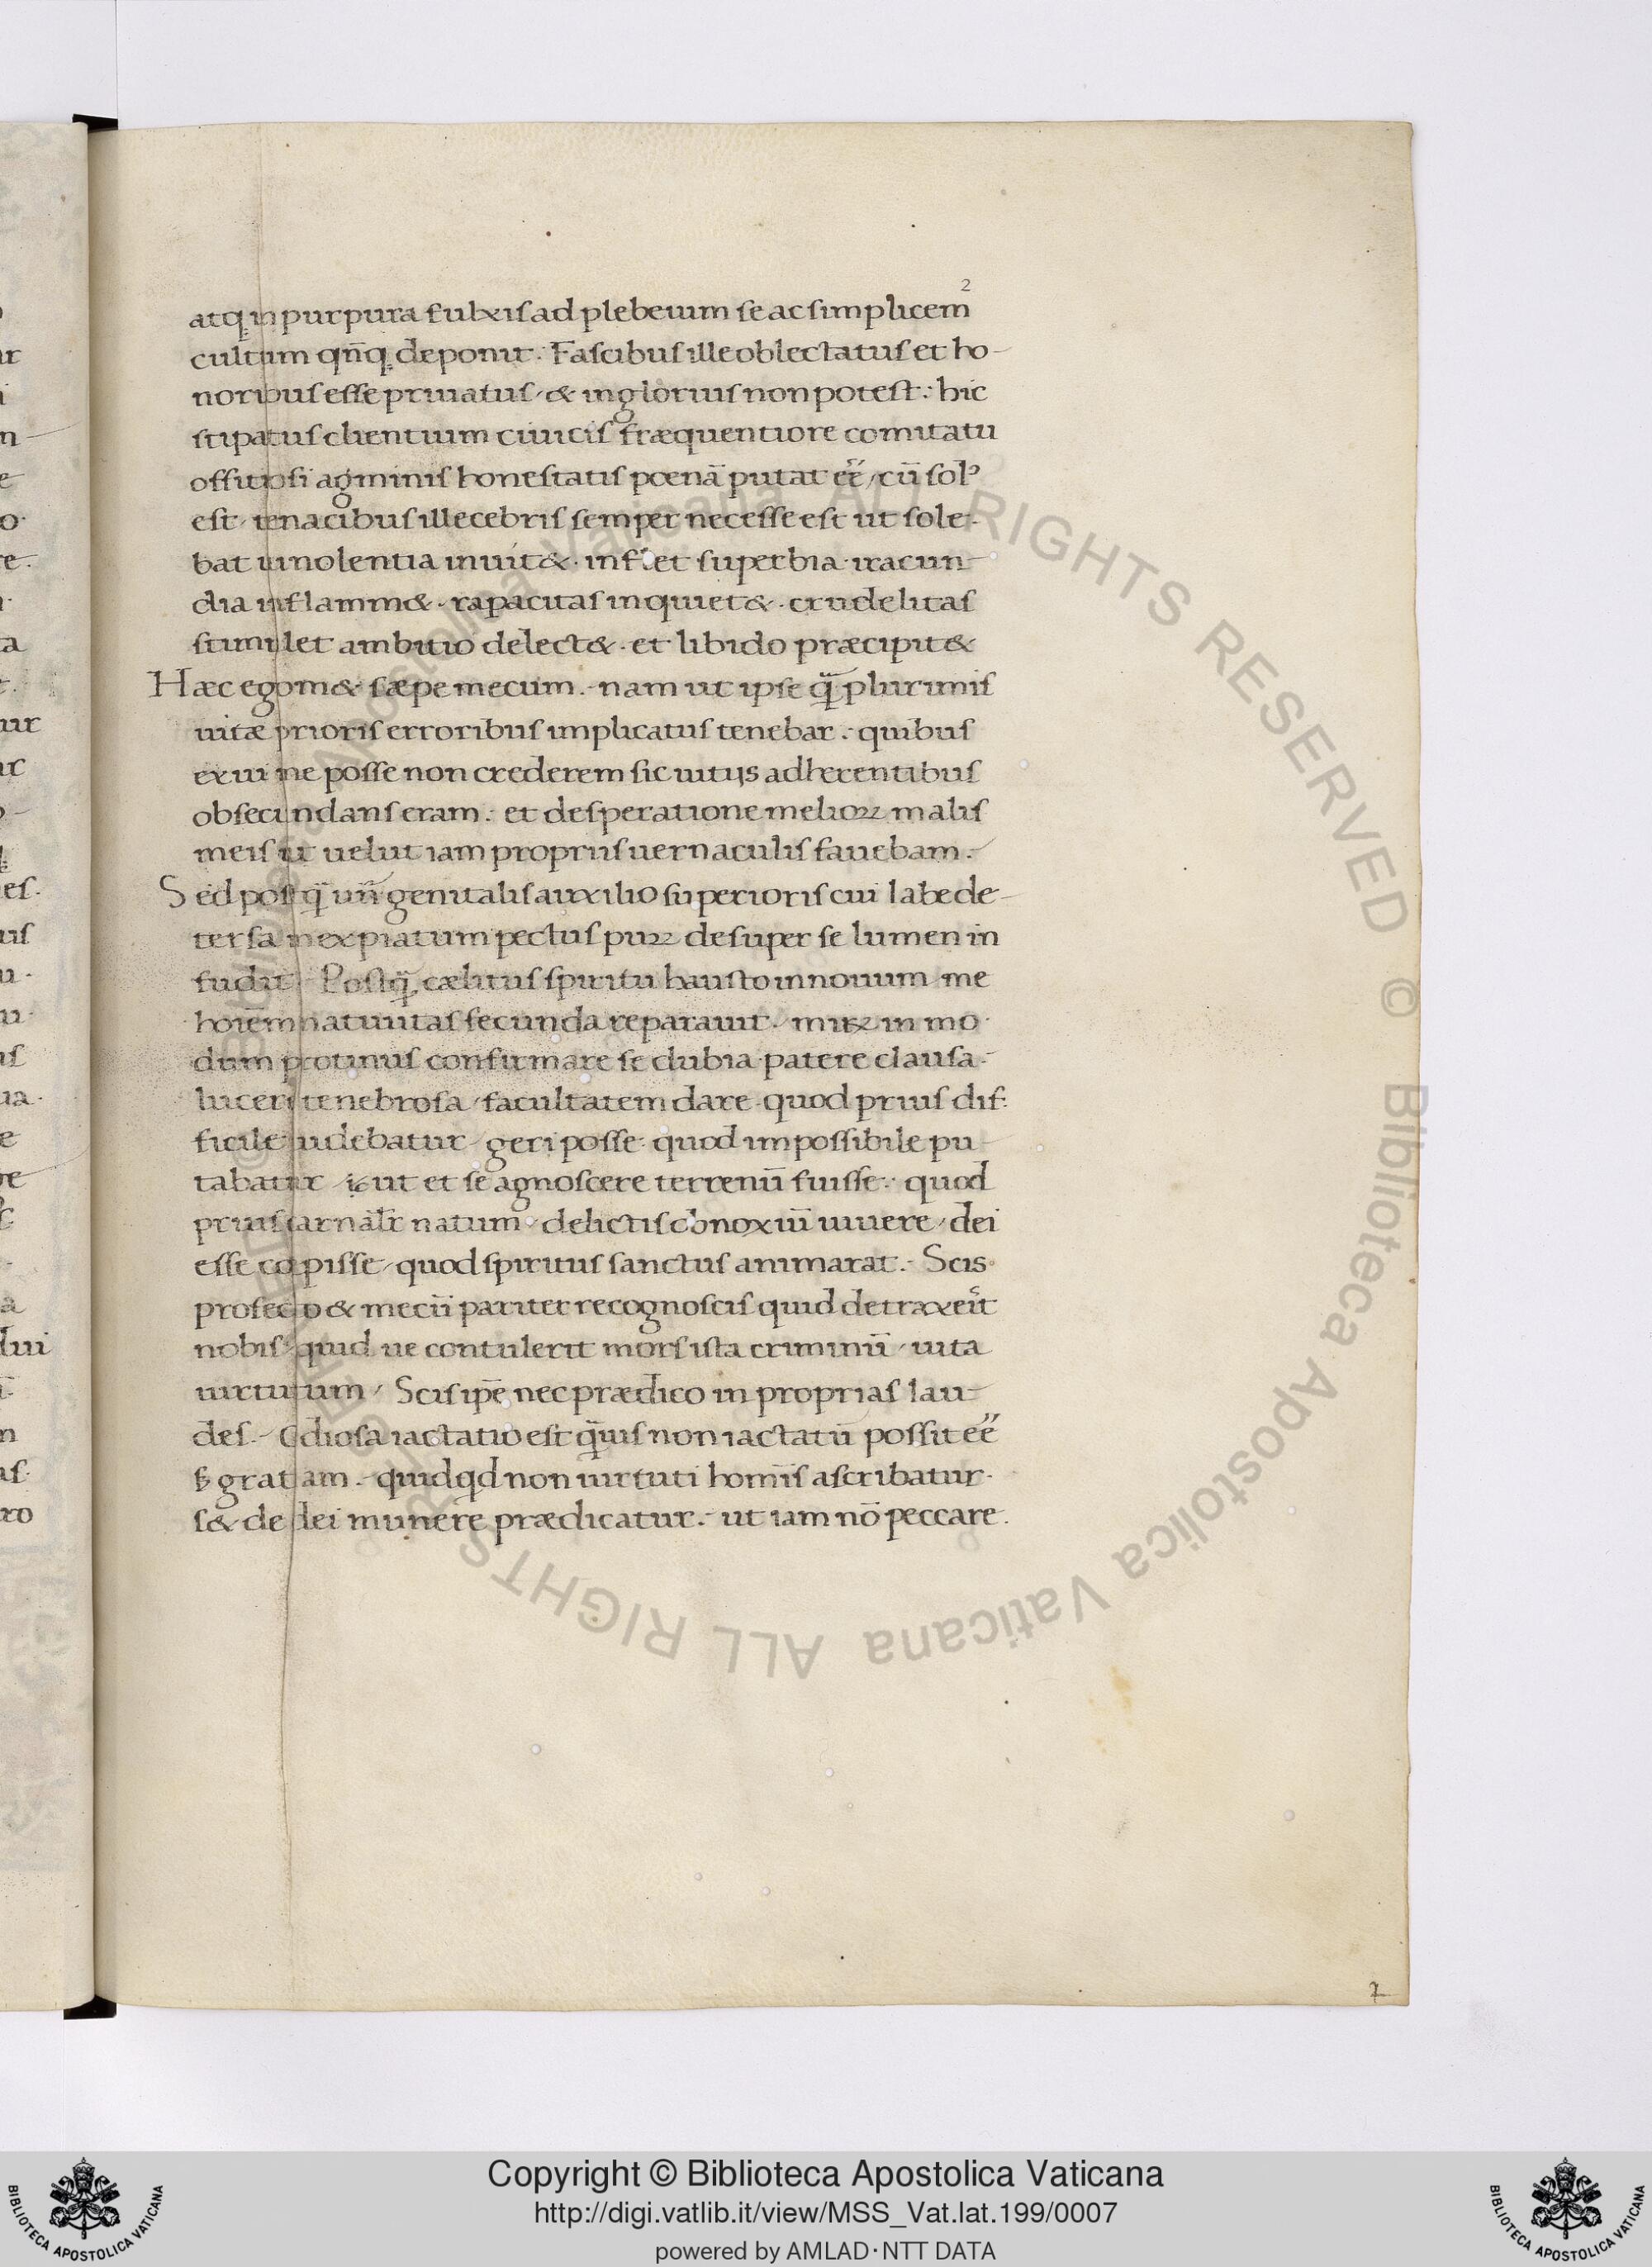 2
atq; in purpura fulxis ad plebeium se ac simplicem
cultum qn̄q; deponit. Fascibus ille oblectatus et ho-
noribus esse priuatus & inglorius non potest: hic
stipatus clientium ciuicis fræquentiore comitatu
offitiosi agminis honestatis pœnā putat eē, cū solꝰ
est, tenacibus illecebris semper necesse est ut sole-
bat uinolentia inuit&. inflet superbia. iracun-
dia inflamm&. rapacitas inquiet&. crudelitas
stimulet ambitio delect&. et libido præcipit&
Hæc egom& sæpe mecum. nam ut ipse q̄ plurimis
uitæ prioris erroribus implicatus tenebar. quibus
exui me posse non crederem sic uitijs adherentibus
obsecundans eram. et desperatione melioꝝ malis
meis ut uelut iam proprius uernaculis fauebam.
Sed postq̄ un̄ genitalis auxilio superioris eui labe de-
tersa in expiatum pectus puꝝ desuper se lumen in
fudit. Postq̄ cælitus spiritu hausto in nouum me
hoiēm natiuitas secunda reparauit. miꝝ in mo
dum protinus confirmare se dubia patere clausa.
luceri tenebrosa, facultatem dare quod prius dif:
ficile uidebatur, geri posse quod impossibile pu-
tabatur, ut et se agnoscere terrenū fuisse. quod
prius carnalr̄ natum, delictis obnoxiū uiuere, dei
esse cœpisse, quod spiritus sanctus animarat. Scis
profecto & mecū pariter recognoscis quid detraxeīt
nobis quid ue contulerit mors ista criminū, uita
uirtutum, Scis ipē nec prædico in proprias lau-
des. Odiosa iactatio est q̄uis non iactatū possit eē
ß gratam. quidqd non uirtuti homīs ascribatur.
s& de dei munere prædicatur. ut iam nō peccare.
r
i
n
e
o.
re.
ta
ur
ar
es.
us
u.
ua.
e
re
a
lui
n
as.
ro
2
© Biblioteca Apostolica Vaticana ALL RIGHTS RESERVED © Biblioteca Apostolica Vaticana ALL RIGHTS RESERVED
BIBLIOTECA APOSTOLICA VATICANA
Copyright © Biblioteca Apostolica Vaticana
http://digi.vatlib.it/view/MSS_Vat.lat.199/0007
powered by AMLAD·NTT DATA
BIBLIOTECA APOSTOLICA VATICANA